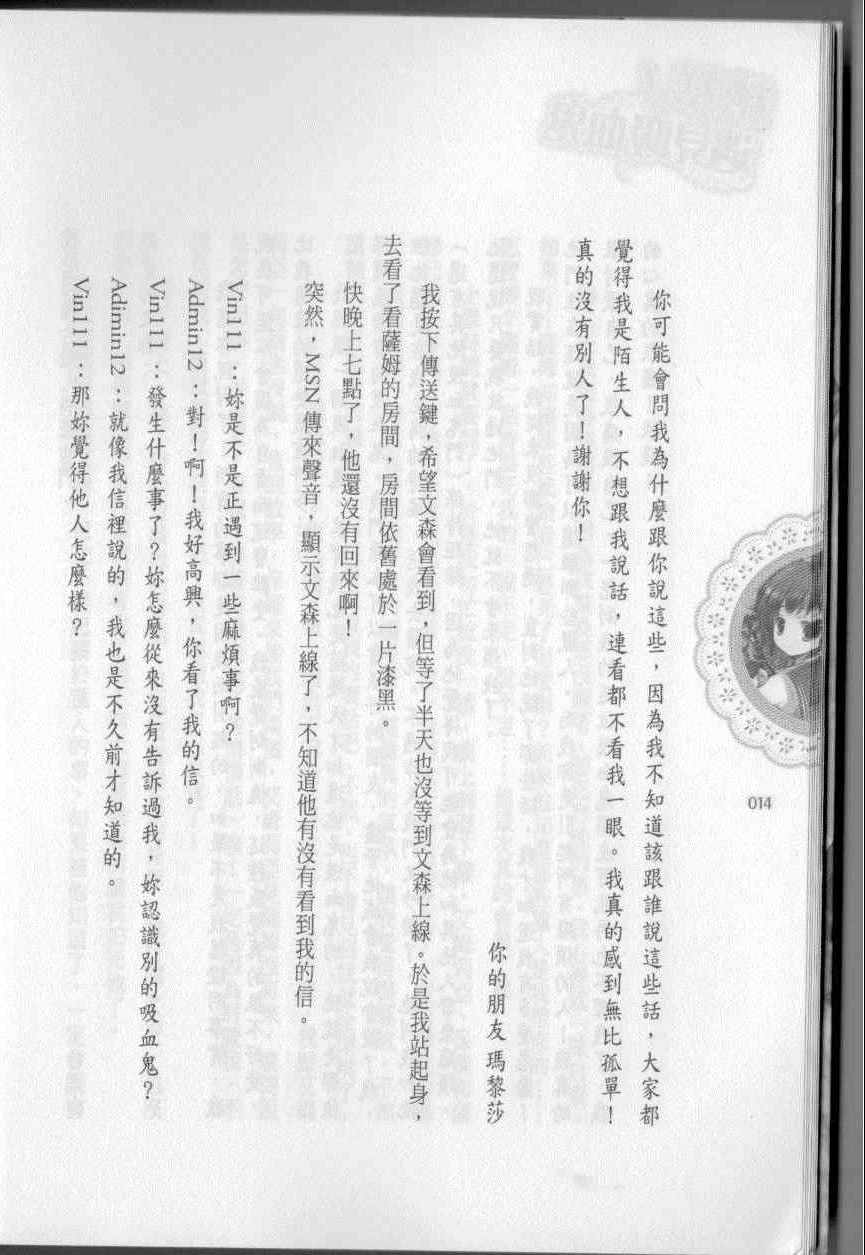 你可能會問我為什麼跟你說這些，因為我不知道該跟誰說這些話，大家都
覺得我是陌生人，不想跟我說話，連看都不看我一眼。我真的感到無比孤單！
真的沒有別人了！謝謝你！
你的朋友瑪黎莎
我按下傳送鍵，希望文森會看到，但等了半天也沒等到文森上線。於是我站起身，
去看了看薩姆的房間，房間依舊處於一片漆黑。
快晚上七點了，他還沒有回來啊！
突然，MSN 傳來聲音，顯示文森上線了，不知道他有沒有看到我的信。
Vin111：妳是不是正遇到一些麻煩事啊？
Admin12：對！啊！我好高興，你看了我的信。
Vin111：發生什麼事了？妳怎麼從來沒有告訴過我，妳認識別的吸血鬼？
Adimin12：就像我信裡說的，我也是不久前才知道的。
Vin111：那妳覺得他人怎麼樣？
014